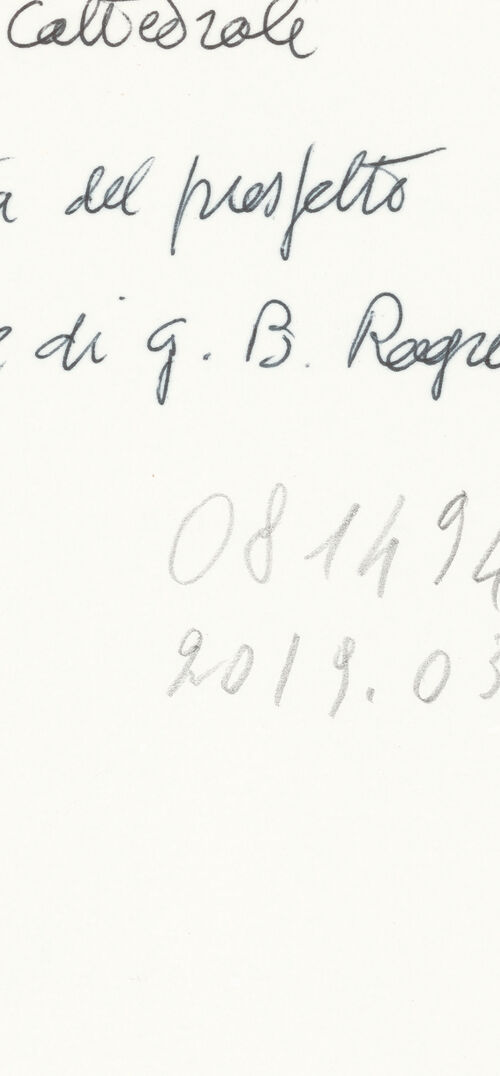 Cattedrale
del prospetto
di G. B. Ragu
081494
2019.03